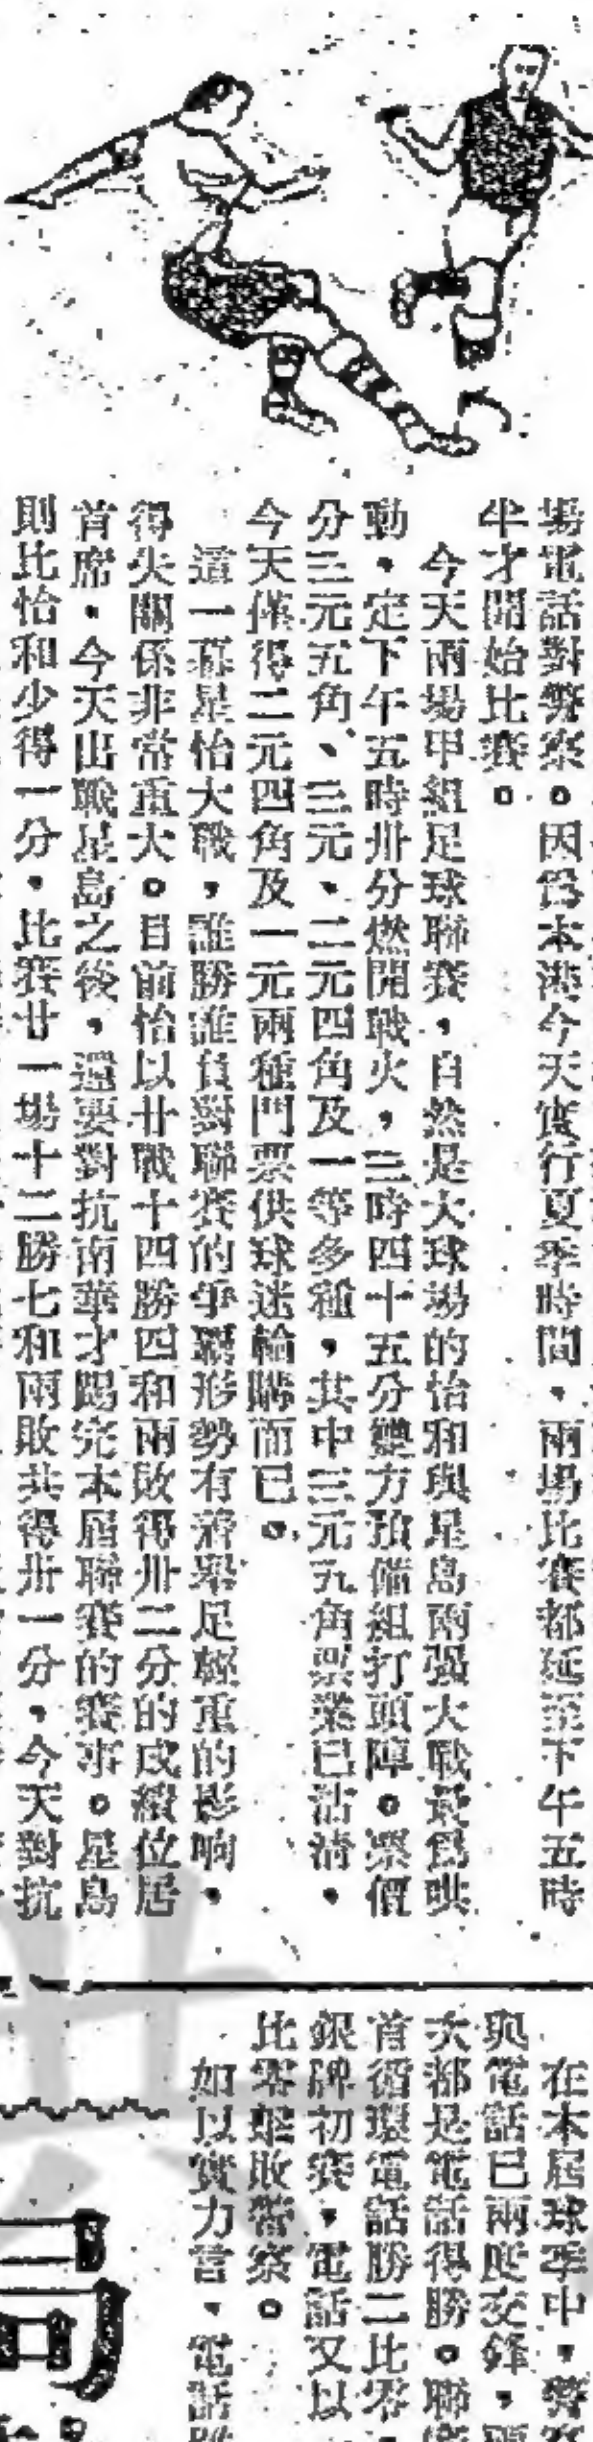 場電話對警察。因爲本港今天實行夏季時間，兩場比賽都延至下午五時
半才開始比賽。
今天兩場甲組足球聯賽，自然是大球場的怡和與星島兩强大戰最爲哄
動，定下午五時卅分燃開戰火，三時四十五分雙方預備組打頭陣。票價
分三元五角、三元、二元四角及一等多種，其中三元五角票業已沽清，
今天僅得二元四角及一元兩種門票供球迷輪購而已。
這一幕星怡大戰，誰勝誰負對聯賽的爭霸形勢有着舉足輕重的影响，
得失關係非常重大。目前怡以廿戰十四勝四和兩敗得卅二分的成績位居
首席，今天出戰星島之後，還要對抗南華才踢完本屆聯賽的賽事。星島
則比怡和少得一分，比賽廿一場十二勝七和兩敗共得卅一分，今天對抗
在本屆球季中，警察
與電話已兩度交鋒，兩
次都是電話得勝。聯賽
首循環電話勝二比零，
銀牌初賽，電話又以
比零擊敗警察。
如以實力言，電話
司